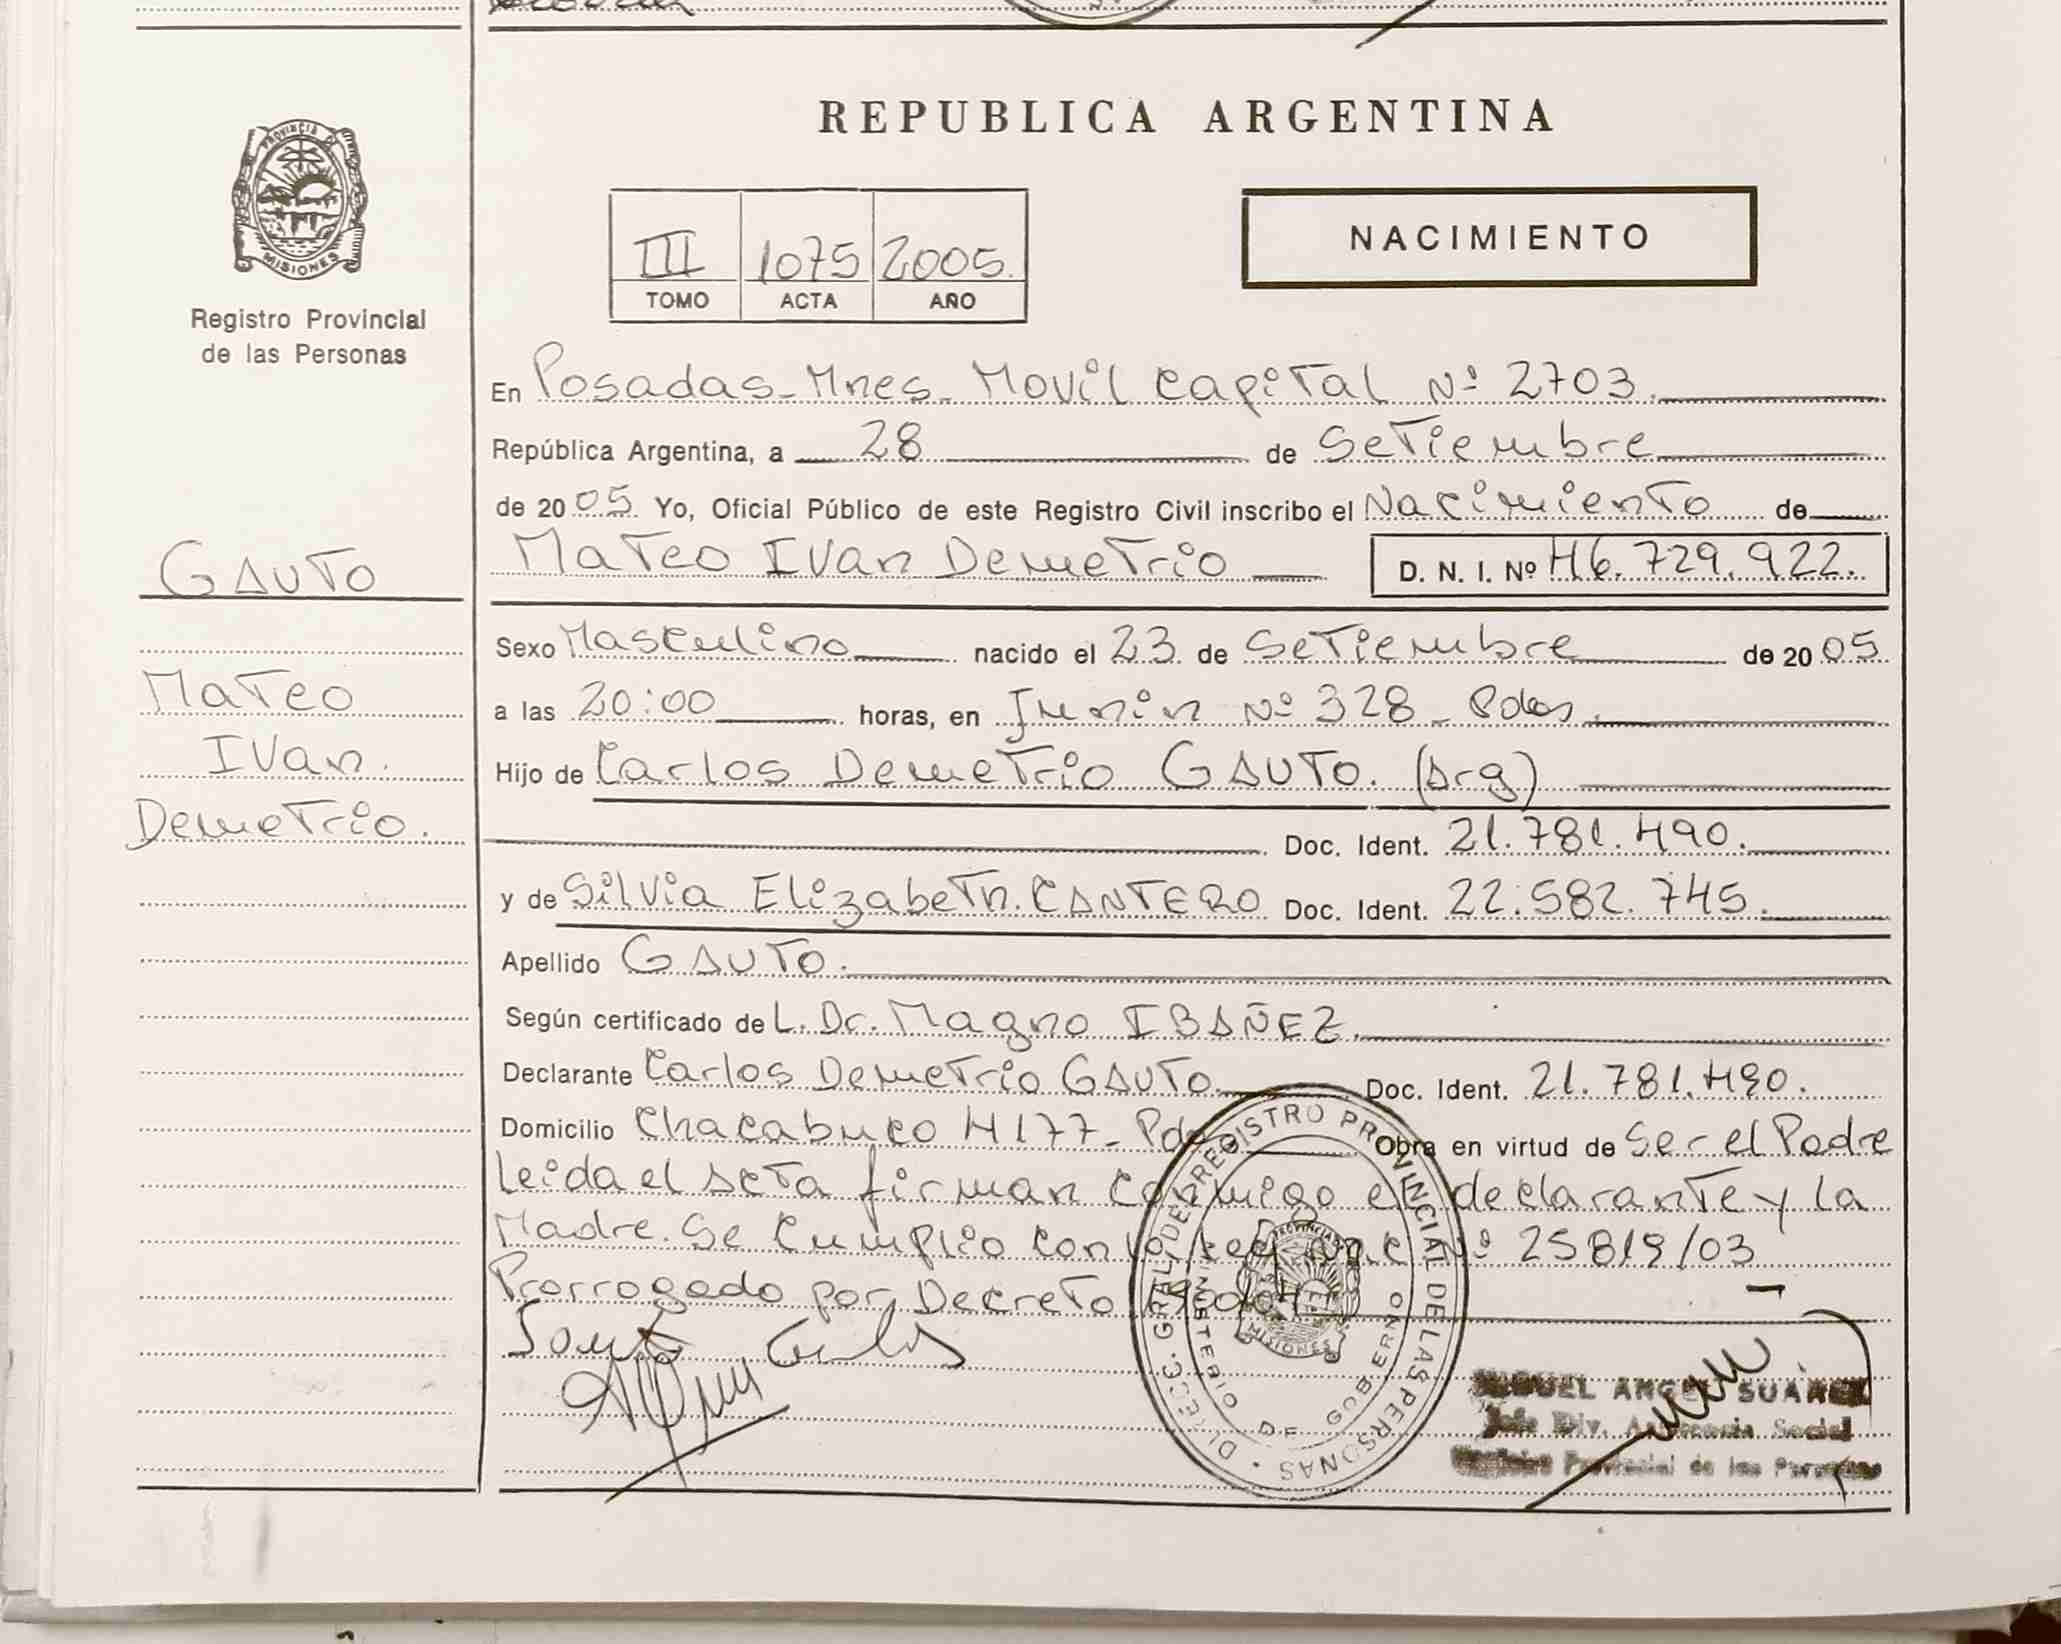 REPUBLICA ARGENTINA
PROVINCIA DE MISIONES
Registro Provincial
de las Personas
III 1075 2005.
TOMO ACTA AÑO
NACIMIENTO
En Posadas-Mnes- Movil Capital Nº 2703.
República Argentina, a 28 de Setiembre
de 2005. Yo, Oficial Público de este Registro Civil inscribo el Nacimiento de
GAUTO
Mateo Ivan Demetrio D. N. I. Nº 46.729.922.
Sexo Masculino nacido el 23 de Setiembre de 2005
Mateo
a las 20:00 horas, en Junin Nº 328 - Pdas.
Ivan.
Hijo de Carlos Demetrio GAUTO. (Arg)
Demetrio.
Doc. Ident. 21.781.490.
y de Silvia Elizabeth. CANTERO Doc. Ident. 22.582.745.
Apellido GAUTO.
Según certificado de L. Dr. Magno IBAÑEZ.
Declarante Carlos Demetrio GAUTO. Doc. Ident. 21.781.490.
Domicilio Chacabuco 4177- Pdas Obra en virtud de Ser el Padre
Leida el acta firman conmigo el declarante y la
Madre. Se Cumplio con Nº 25819/03
Prorrogado por Decreto
DIRECC. GRAL. DEL REGISTRO PROVINCIAL DE LAS PERSONAS
MINISTERIO DE GOBIERNO
PROVINCIA DE MISIONES
MIGUEL ANGEL SUAREZ
Jefe Div. Asistencia Social
Registro Provincial de las Personas